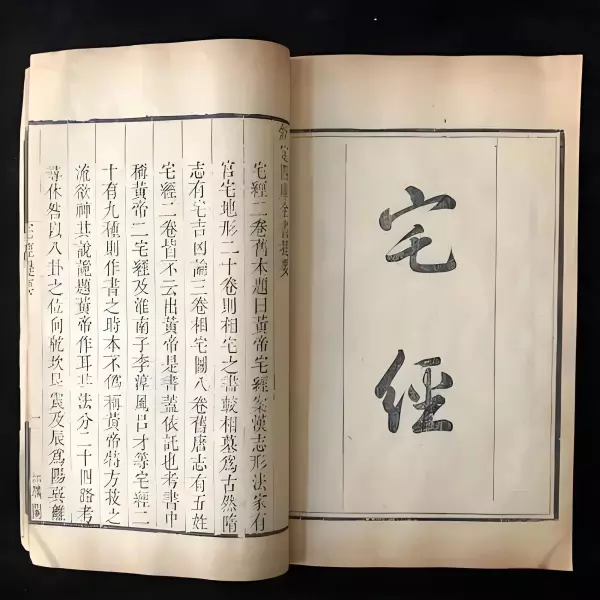 宅經
欽定四庫全書提要
宅經二卷舊本題曰黃帝宅經案漢志形法家有
宮宅地形二十卷則相宅之書較相墓為古然隋
志有宅吉凶論三卷相宅圖八卷舊唐志有五姓
宅經二卷皆不云出黃帝是書蓋依託也考書中
稱黃帝二宅經及淮南子李淳風呂才等宅經二
十有九種則作書之時本不偽稱黃帝特方技之
流欲神其說詭題黃帝作耳其法分二十四路考
尋休咎以八卦之位向乾坎艮震及辰為陽巽離
宅經提要
一